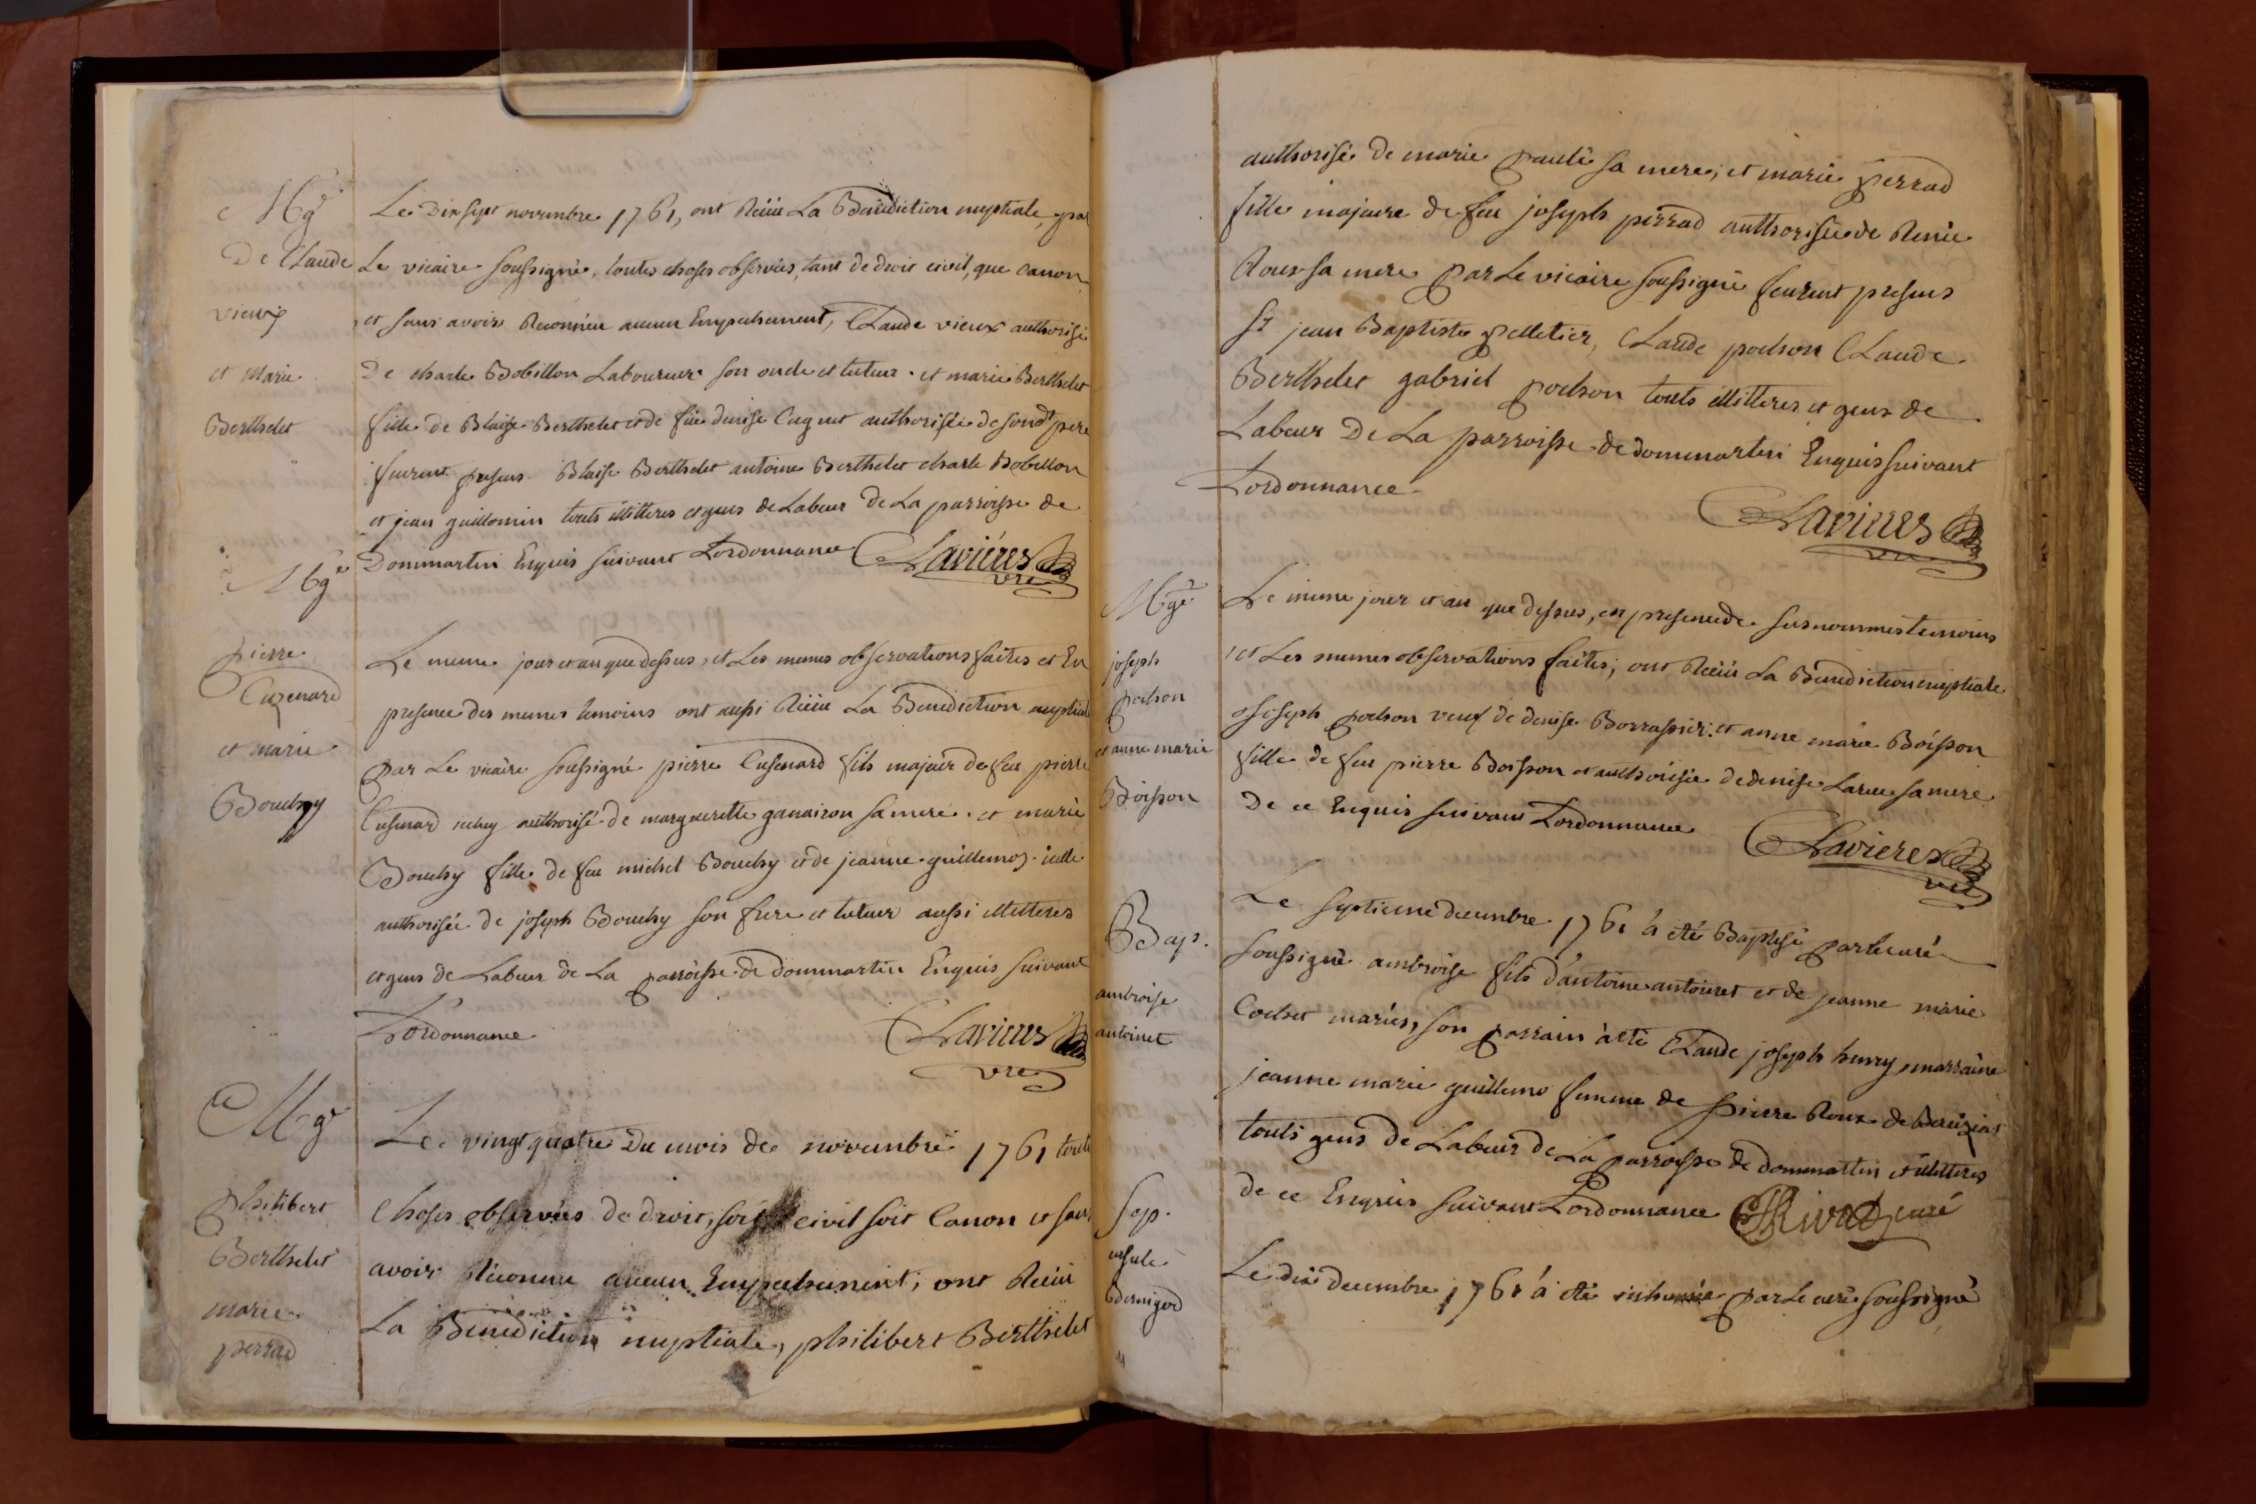 Mgr
De Claude
vieux
et Marie
Berthelet
Le Dix sept novembre 1761, ont Reçu La Bénédiction nuptiale, par
Le vicaire soussigné, toutes choses observées, tant de droit civil, que canon
et sans avoir Reconneu aucun Empechement, Claude vieux authorisé
De charle Bobillon Laboureur son oncle et tuteur. et marie Berthelet
fille de Blaise Berthelet et de füe denise Cuguet authorisée de sondt pere
furent presens Blaise Berthelet antoine Berthelet charle Bobillon
et jean guillomin touts illitteres et gens de Labeur De La parroisse de
Dommartin Enquis suivant Lordonnance Clavieres
vre
Mgr
pierre
Cuzenard
et marie
Bouchy
Le meme jour et an que dessus, et Les memes observations faites et En
presence des memes temoins ont aussi Reçu La Benediction nuptiale
par Le vicaire soussigné pierre Cusenard fils majeur de feu pierre
Cusenard authorisé de marguerette ganairon sa mere. et marie
Bouchy fille de feu michel Bouchy et de jeanne guillemoz. icelle
authorisée de joseph Bouchy son frere et tuteur aussi illitteres
et gens de Labeur de La parroisse de dommartin Enquis suivant
Lordonnance Clavieres
vre
Mgr
philibert
Berthelet
marie
perrad
Le vingt quatre Du mois de novembre 1761 toute
choses observées de droit, soit civil soit Canon et sans
avoir Reconnu aucun Empechement, ont Reçu
La Benediction nuptiale, philibert Berthelet
authorisé De marie paule sa mere; et marie perrad
fille majeure de feu joseph perrad authorisée de Renée
Roux sa mere par Le vicaire soussigné feurent presens
Sr jean Baptiste pelletier, Claude pochon Claude
Berthelet gabriel pochon touts illitteres et gens de
Labeur De La parroisse de dommartin Enquis suivant
Lordonnance
Clavieres
vre
Mgr
joseph
pochon
et anne marie
Boisson
Le meme jour et an que dessus, en presence de susnommes temoins
et Les memes observations faites; ont Reçu La Benediction nuptiale
joseph pochon veuf de denise Borrassier. et anne marie Boisson
fille de feu pierre Boisson et authorisée de denise Larue sa mere
De ce Enquis suivant Lordonnance
Clavieres
vre
Bap.
ambroise
antoinet
Le septieme decembre 1761 a été Baptisé par le curé
soussigné ambroise fils d'antoine antoinet et de jeanne marie
Cochet mariés, son parrain a été Claude joseph henry, marraine
jeanne marie guillemo femme de pierre Roux de Bereizia
touts gens de Labeur de La parroisse de dommartin et illitteres
de ce Enquis suivant Lordonnance Rivod curé
Sep.
ursule
Bernigod
Le dix decembre 1761 a été inhumée par Le curé soussigné